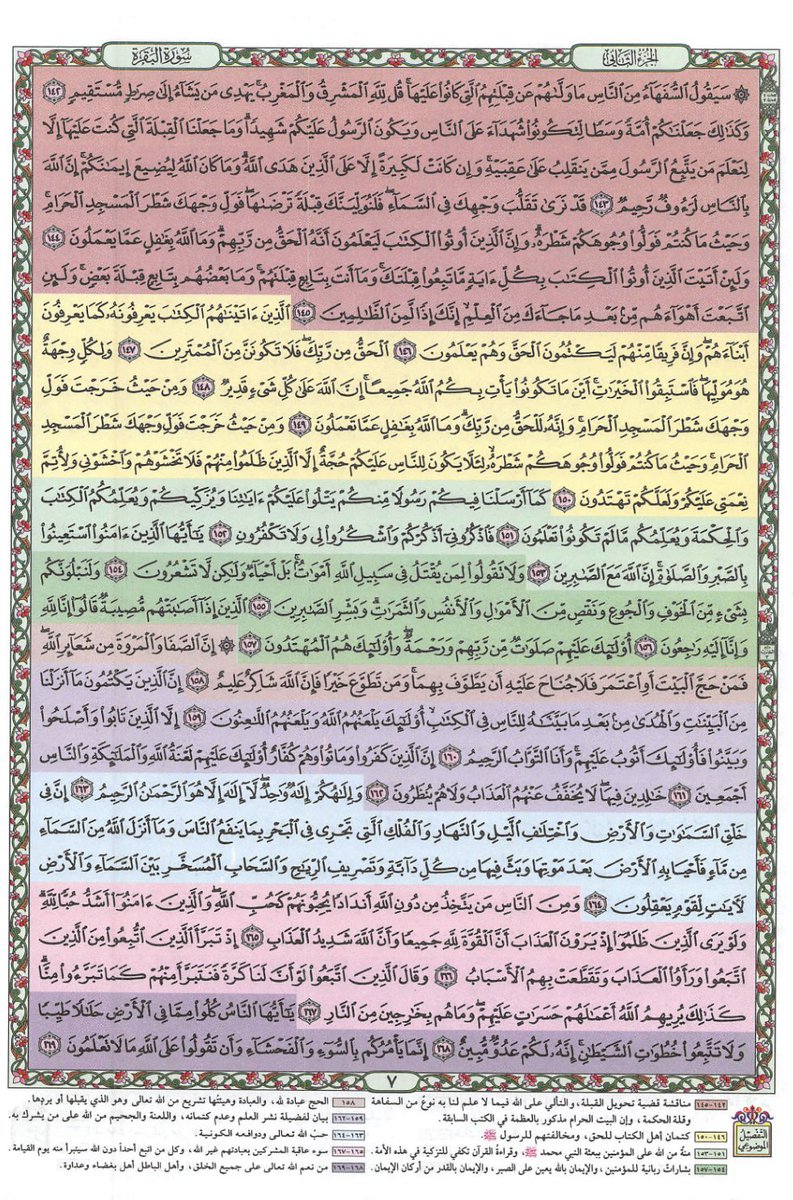 الجزء الثاني
سورة البقرة
۞ سَيَقُولُ السُّفَهَاءُ مِنَ النَّاسِ مَا وَلَّاهُمْ عَن قِبْلَتِهِمُ الَّتِي كَانُوا عَلَيْهَا ۚ قُل لِّلَّهِ الْمَشْرِقُ وَالْمَغْرِبُ ۚ يَهْدِي مَن يَشَاءُ إِلَىٰ صِرَاطٍ مُّسْتَقِيمٍ ١٤٢
وَكَذَٰلِكَ جَعَلْنَاكُمْ أُمَّةً وَسَطًا لِّتَكُونُوا شُهَدَاءَ عَلَى النَّاسِ وَيَكُونَ الرَّسُولُ عَلَيْكُمْ شَهِيدًا ۗ وَمَا جَعَلْنَا الْقِبْلَةَ الَّتِي كُنتَ عَلَيْهَا إِلَّا
لِنَعْلَمَ مَن يَتَّبِعُ الرَّسُولَ مِمَّن يَنقَلِبُ عَلَىٰ عَقِبَيْهِ ۚ وَإِن كَانَتْ لَكَبِيرَةً إِلَّا عَلَى الَّذِينَ هَدَى اللَّهُ ۗ وَمَا كَانَ اللَّهُ لِيُضِيعَ إِيمَانَكُمْ ۚ إِنَّ اللَّهَ
بِالنَّاسِ لَرَءُوفٌ رَّحِيمٌ ١٤٣ قَدْ نَرَىٰ تَقَلُّبَ وَجْهِكَ فِي السَّمَاءِ ۖ فَلَنُوَلِّيَنَّكَ قِبْلَةً تَرْضَاهَا ۚ فَوَلِّ وَجْهَكَ شَطْرَ الْمَسْجِدِ الْحَرَامِ ۚ
وَحَيْثُ مَا كُنتُمْ فَوَلُّوا وُجُوهَكُمْ شَطْرَهُ ۗ وَإِنَّ الَّذِينَ أُوتُوا الْكِتَابَ لَيَعْلَمُونَ أَنَّهُ الْحَقُّ مِن رَّبِّهِمْ ۗ وَمَا اللَّهُ بِغَافِلٍ عَمَّا يَعْمَلُونَ ١٤٤
وَلَئِنْ أَتَيْتَ الَّذِينَ أُوتُوا الْكِتَابَ بِكُلِّ آيَةٍ مَّا تَبِعُوا قِبْلَتَكَ ۚ وَمَا أَنتَ بِتَابِعٍ قِبْلَتَهُمْ ۚ وَمَا بَعْضُهُم بِتَابِعٍ قِبْلَةَ بَعْضٍ ۚ وَلَئِنِ
اتَّبَعْتَ أَهْوَاءَهُم مِّن بَعْدِ مَا جَاءَكَ مِنَ الْعِلْمِ ۙ إِنَّكَ إِذًا لَّمِنَ الظَّالِمِينَ ١٤٥ الَّذِينَ آتَيْنَاهُمُ الْكِتَابَ يَعْرِفُونَهُ كَمَا يَعْرِفُونَ
أَبْنَاءَهُمْ ۖ وَإِنَّ فَرِيقًا مِّنْهُمْ لَيَكْتُمُونَ الْحَقَّ وَهُمْ يَعْلَمُونَ ١٤٦ الْحَقُّ مِن رَّبِّكَ ۖ فَلَا تَكُونَنَّ مِنَ الْمُمْتَرِينَ ١٤٧ وَلِكُلٍّ وِجْهَةٌ
هُوَ مُوَلِّيهَا ۖ فَاسْتَبِقُوا الْخَيْرَاتِ ۚ أَيْنَ مَا تَكُونُوا يَأْتِ بِكُمُ اللَّهُ جَمِيعًا ۚ إِنَّ اللَّهَ عَلَىٰ كُلِّ شَيْءٍ قَدِيرٌ ١٤٨ وَمِنْ حَيْثُ خَرَجْتَ فَوَلِّ
وَجْهَكَ شَطْرَ الْمَسْجِدِ الْحَرَامِ ۖ وَإِنَّهُ لَلْحَقُّ مِن رَّبِّكَ ۗ وَمَا اللَّهُ بِغَافِلٍ عَمَّا تَعْمَلُونَ ١٤٩ وَمِنْ حَيْثُ خَرَجْتَ فَوَلِّ وَجْهَكَ شَطْرَ الْمَسْجِدِ
الْحَرَامِ ۚ وَحَيْثُ مَا كُنتُمْ فَوَلُّوا وُجُوهَكُمْ شَطْرَهُ لِئَلَّا يَكُونَ لِلنَّاسِ عَلَيْكُمْ حُجَّةٌ إِلَّا الَّذِينَ ظَلَمُوا مِنْهُمْ فَلَا تَخْشَوْهُمْ وَاخْشَوْنِي وَلِأُتِمَّ
نِعْمَتِي عَلَيْكُمْ وَلَعَلَّكُمْ تَهْتَدُونَ ١٥٠ كَمَا أَرْسَلْنَا فِيكُمْ رَسُولًا مِّنكُمْ يَتْلُو عَلَيْكُمْ آيَاتِنَا وَيُزَكِّيكُمْ وَيُعَلِّمُكُمُ الْكِتَابَ
وَالْحِكْمَةَ وَيُعَلِّمُكُم مَّا لَمْ تَكُونُوا تَعْلَمُونَ ١٥١ فَاذْكُرُونِي أَذْكُرْكُمْ وَاشْكُرُوا لِي وَلَا تَكْفُرُونِ ١٥٢ يَا أَيُّهَا الَّذِينَ آمَنُوا اسْتَعِينُوا
بِالصَّبْرِ وَالصَّلَاةِ ۚ إِنَّ اللَّهَ مَعَ الصَّابِرِينَ ١٥٣ وَلَا تَقُولُوا لِمَن يُقْتَلُ فِي سَبِيلِ اللَّهِ أَمْوَاتٌ ۚ بَلْ أَحْيَاءٌ وَلَٰكِن لَّا تَشْعُرُونَ ١٥٤ وَلَنَبْلُوَنَّكُم
بِشَيْءٍ مِّنَ الْخَوْفِ وَالْجُوعِ وَنَقْصٍ مِّنَ الْأَمْوَالِ وَالْأَنفُسِ وَالثَّمَرَاتِ ۗ وَبَشِّرِ الصَّابِرِينَ ١٥٥ الَّذِينَ إِذَا أَصَابَتْهُم مُّصِيبَةٌ قَالُوا إِنَّا لِلَّهِ
وَإِنَّا إِلَيْهِ رَاجِعُونَ ١٥٦ أُولَٰئِكَ عَلَيْهِمْ صَلَوَاتٌ مِّن رَّبِّهِمْ وَرَحْمَةٌ ۖ وَأُولَٰئِكَ هُمُ الْمُهْتَدُونَ ١٥٧ ۞ إِنَّ الصَّفَا وَالْمَرْوَةَ مِن شَعَائِرِ اللَّهِ ۖ
فَمَنْ حَجَّ الْبَيْتَ أَوِ اعْتَمَرَ فَلَا جُنَاحَ عَلَيْهِ أَن يَطَّوَّفَ بِهِمَا ۚ وَمَن تَطَوَّعَ خَيْرًا فَإِنَّ اللَّهَ شَاكِرٌ عَلِيمٌ ١٥٨ إِنَّ الَّذِينَ يَكْتُمُونَ مَا أَنزَلْنَا
مِنَ الْبَيِّنَاتِ وَالْهُدَىٰ مِن بَعْدِ مَا بَيَّنَّاهُ لِلنَّاسِ فِي الْكِتَابِ ۙ أُولَٰئِكَ يَلْعَنُهُمُ اللَّهُ وَيَلْعَنُهُمُ اللَّاعِنُونَ ١٥٩ إِلَّا الَّذِينَ تَابُوا وَأَصْلَحُوا
وَبَيَّنُوا فَأُولَٰئِكَ أَتُوبُ عَلَيْهِمْ ۚ وَأَنَا التَّوَّابُ الرَّحِيمُ ١٦٠ إِنَّ الَّذِينَ كَفَرُوا وَمَاتُوا وَهُمْ كُفَّارٌ أُولَٰئِكَ عَلَيْهِمْ لَعْنَةُ اللَّهِ وَالْمَلَائِكَةِ وَالنَّاسِ
أَجْمَعِينَ ١٦١ خَالِدِينَ فِيهَا ۖ لَا يُخَفَّفُ عَنْهُمُ الْعَذَابُ وَلَا هُمْ يُنظَرُونَ ١٦٢ وَإِلَٰهُكُمْ إِلَٰهٌ وَاحِدٌ ۖ لَّا إِلَٰهَ إِلَّا هُوَ الرَّحْمَٰنُ الرَّحِيمُ ١٦٣ إِنَّ فِي
خَلْقِ السَّمَاوَاتِ وَالْأَرْضِ وَاخْتِلَافِ اللَّيْلِ وَالنَّهَارِ وَالْفُلْكِ الَّتِي تَجْرِي فِي الْبَحْرِ بِمَا يَنفَعُ النَّاسَ وَمَا أَنزَلَ اللَّهُ مِنَ السَّمَاءِ
مِن مَّاءٍ فَأَحْيَا بِهِ الْأَرْضَ بَعْدَ مَوْتِهَا وَبَثَّ فِيهَا مِن كُلِّ دَابَّةٍ وَتَصْرِيفِ الرِّيَاحِ وَالسَّحَابِ الْمُسَخَّرِ بَيْنَ السَّمَاءِ وَالْأَرْضِ
لَآيَاتٍ لِّقَوْمٍ يَعْقِلُونَ ١٦٤ وَمِنَ النَّاسِ مَن يَتَّخِذُ مِن دُونِ اللَّهِ أَندَادًا يُحِبُّونَهُمْ كَحُبِّ اللَّهِ ۖ وَالَّذِينَ آمَنُوا أَشَدُّ حُبًّا لِّلَّهِ ۗ
وَلَوْ يَرَى الَّذِينَ ظَلَمُوا إِذْ يَرَوْنَ الْعَذَابَ أَنَّ الْقُوَّةَ لِلَّهِ جَمِيعًا وَأَنَّ اللَّهَ شَدِيدُ الْعَذَابِ ١٦٥ إِذْ تَبَرَّأَ الَّذِينَ اتُّبِعُوا مِنَ الَّذِينَ
اتَّبَعُوا وَرَأَوُا الْعَذَابَ وَتَقَطَّعَتْ بِهِمُ الْأَسْبَابُ ١٦٦ وَقَالَ الَّذِينَ اتَّبَعُوا لَوْ أَنَّ لَنَا كَرَّةً فَنَتَبَرَّأَ مِنْهُمْ كَمَا تَبَرَّءُوا مِنَّا ۗ
كَذَٰلِكَ يُرِيهِمُ اللَّهُ أَعْمَالَهُمْ حَسَرَاتٍ عَلَيْهِمْ ۖ وَمَا هُم بِخَارِجِينَ مِنَ النَّارِ ١٦٧ يَا أَيُّهَا النَّاسُ كُلُوا مِمَّا فِي الْأَرْضِ حَلَالًا طَيِّبًا
وَلَا تَتَّبِعُوا خُطُوَاتِ الشَّيْطَانِ ۚ إِنَّهُ لَكُمْ عَدُوٌّ مُّبِينٌ ١٦٨ إِنَّمَا يَأْمُرُكُم بِالسُّوءِ وَالْفَحْشَاءِ وَأَن تَقُولُوا عَلَى اللَّهِ مَا لَا تَعْلَمُونَ ١٦٩
٧
التفصيل الموضوعي
١٤٢-١٤٥ مناقشة قضية تحويل القبلة، والتألي على الله فيما لا علم لنا به نوعٌ من السفاهة
وقلة الحكمة، وإن البيت الحرام مذكور بالعظمة في الكتب السابقة.
١٤٦-١٥٠ كتمان أهل الكتاب للحق، ومخالفتهم للرسول ﷺ.
١٥١-١٥٣ منةٌ من الله على المؤمنين ببعثة النبي محمد ﷺ، وقراءةُ القرآن تكفي للتزكية في هذه الأمة.
١٥٤-١٥٧ بشاراتٌ ربانية للمؤمنين، والإيمان بالله يعين على الصبر، والإيمان بالقدر من أركان الإيمان.
١٥٨ الحج عبادة لله، والعبادة وهيئتُها تشريع من الله تعالى وهو الذي يقبلها أو يردها.
١٥٩-١٦٢ بيان لفضيلة نشر العلم وعدم كتمانه، واللعنة والجحيم من الله على من يشرك به.
١٦٣-١٦٤ حبُّ الله تعالى ودوافعه الكونية.
١٦٥-١٦٧ سوء عاقبة المشركين بعبادتهم غير الله، وكل من اتبع أحداً دون الله سيتبرأ منه يوم القيامة.
١٦٨-١٦٩ من نعم الله تعالى على جميع الخلق، وأهل الباطل أهل بغضاء وعداوة.